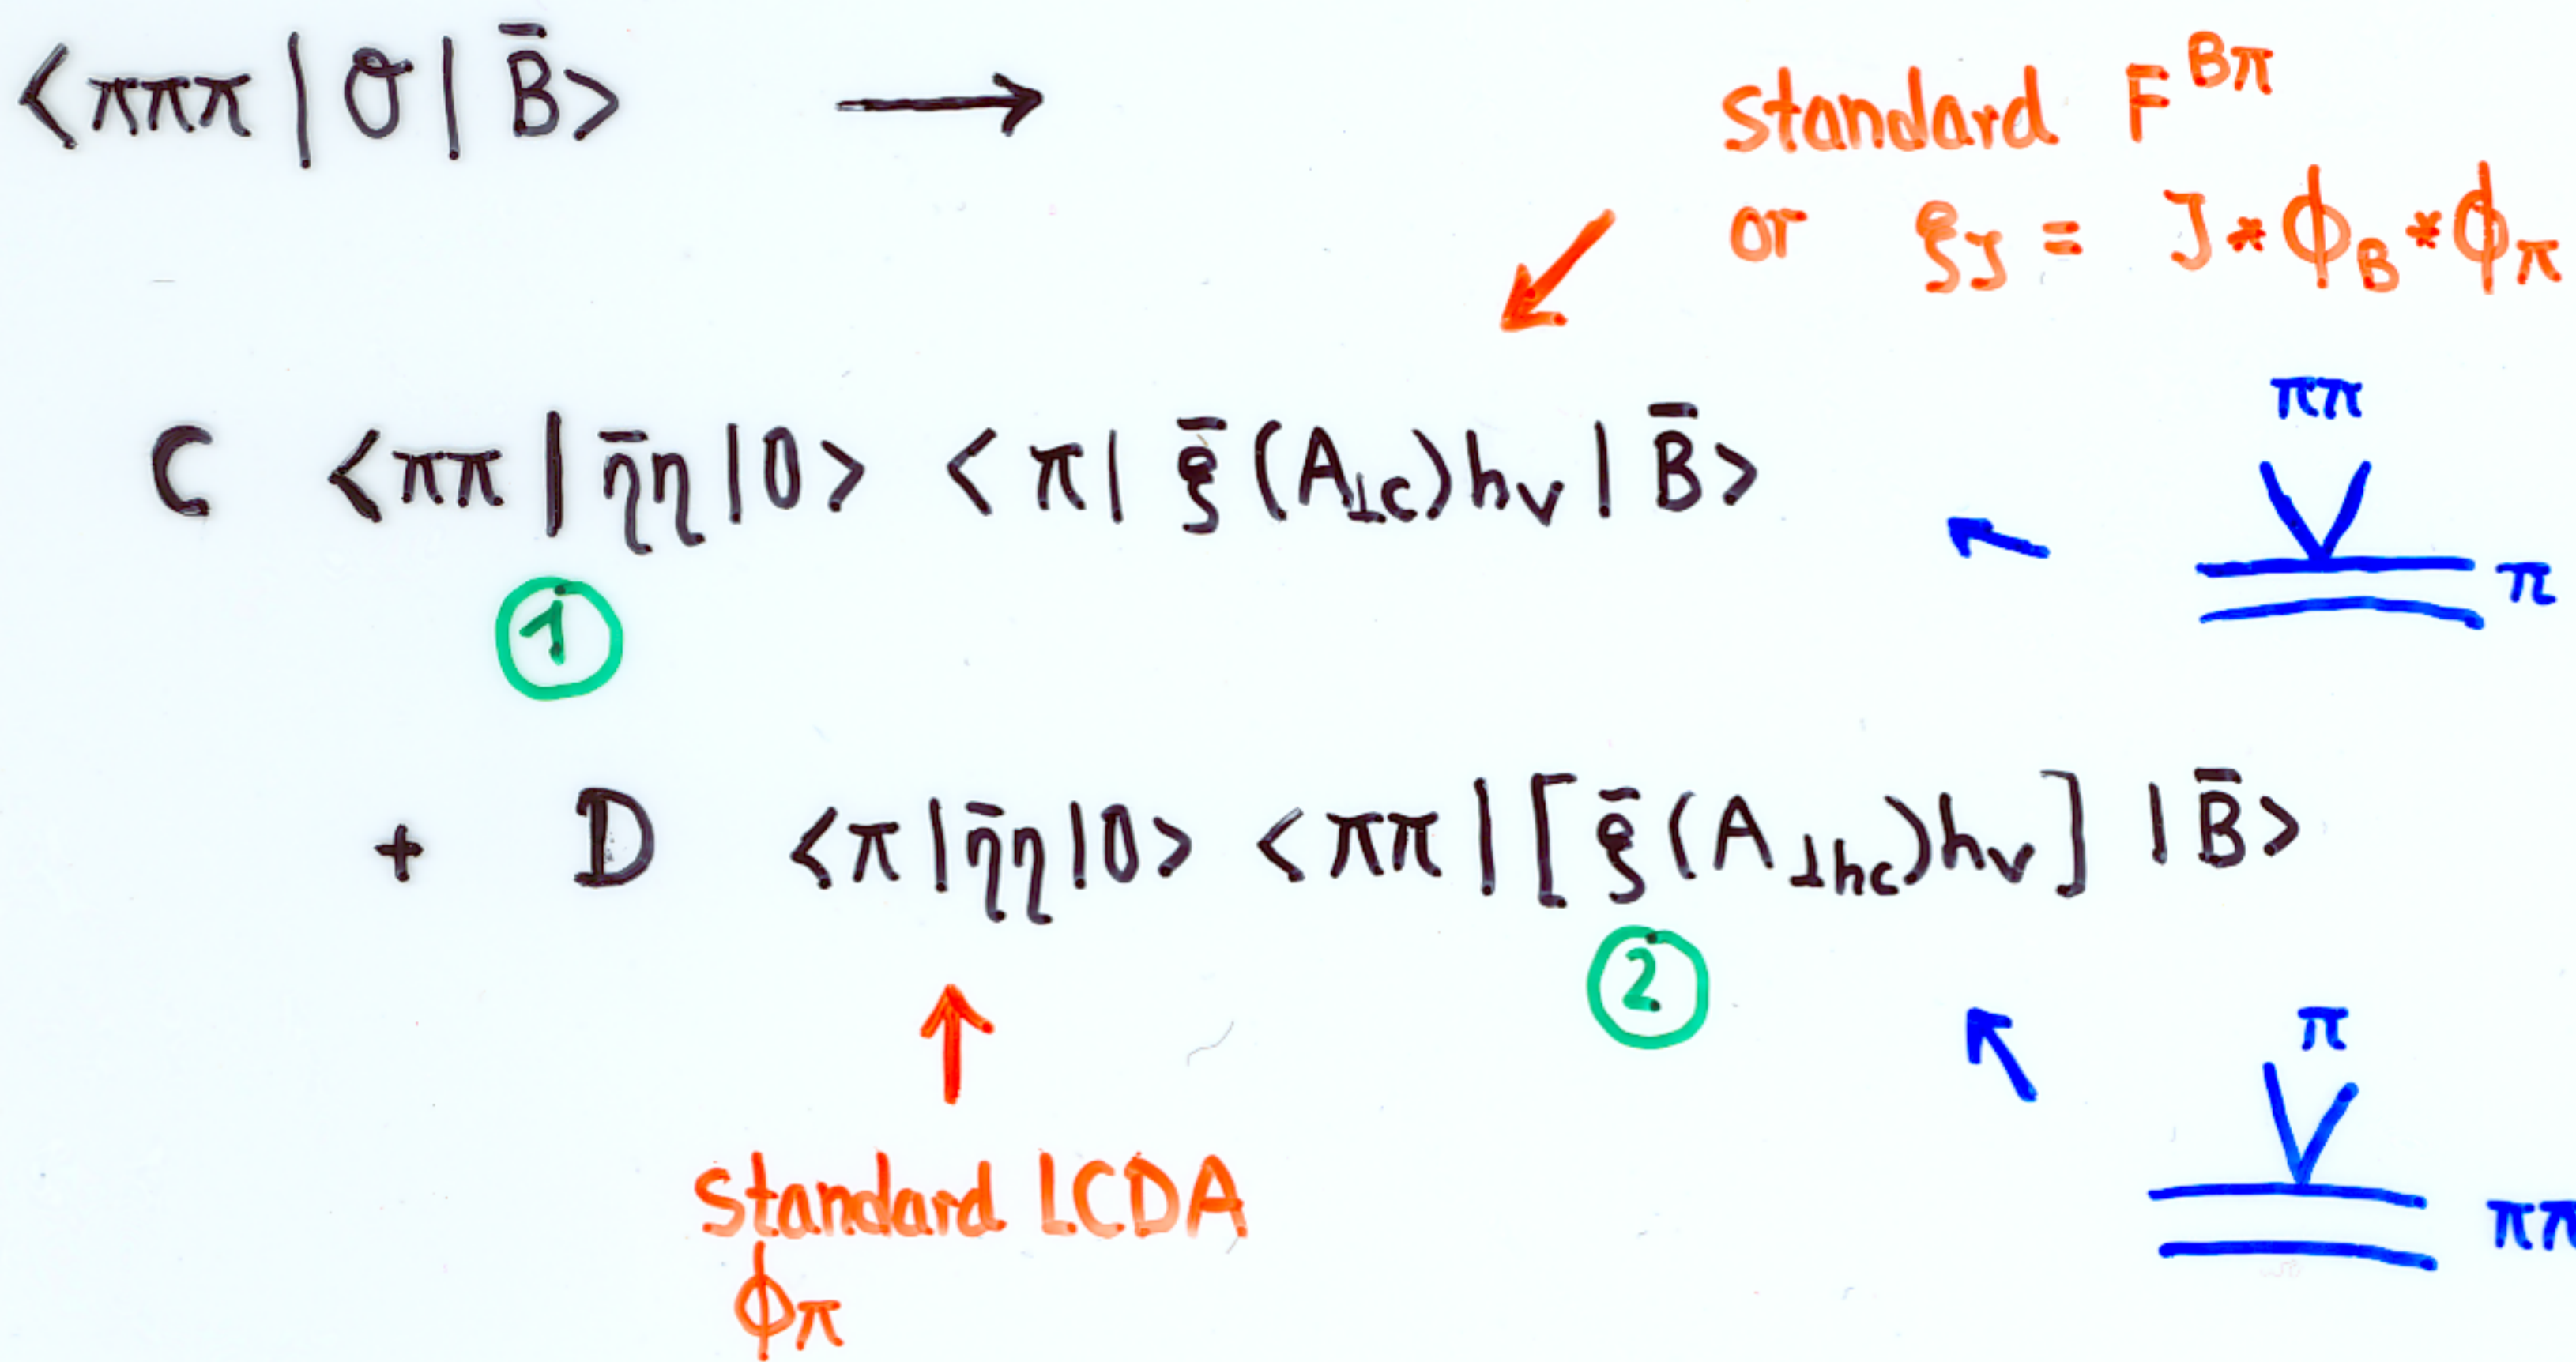 <πππ|O|B̄> →
standard F^{Bπ}
or ξ_J = J * ϕ_B * ϕ_π
C <ππ|η̄η|0> <π|ξ̄(A_{⊥c})h_v|B̄>
ππ
π
①
+ D <π|η̄η|0> <ππ|[ξ̄(A_{⊥hc})h_v]|B̄>
②
π
ππ
standard LCDA
ϕ_π